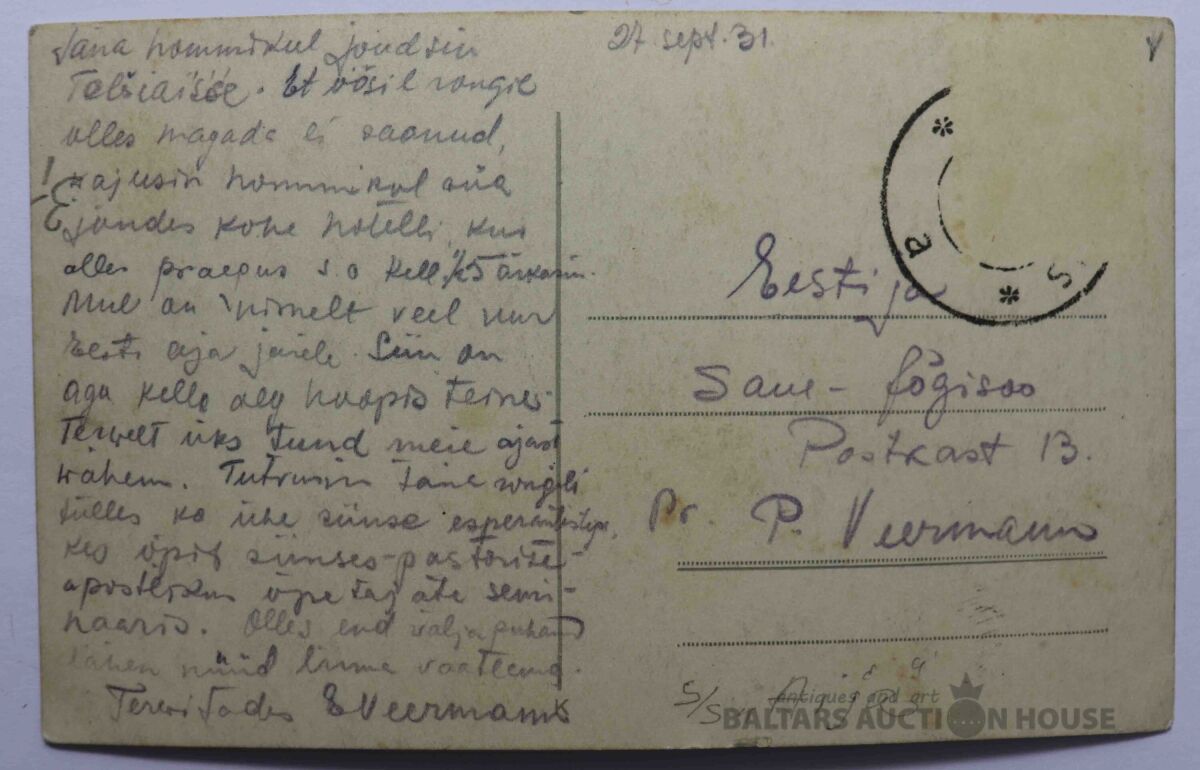 27. sept. 31.
Täna hommikul jõudsin
Telšiaisse. Et öösil rongil
olles magada ei saanud,
wajusin hommikul siia
jõudes kohe hotelli, kus
olles praegus s.o kell 1/25 ärkasin.
Mul on nimelt veel uur
Eesti aja järele. Siin on
aga kella aeg hoopis teine
Terwelt üks tund meie ajast
wähem. Tutwusin täna rongili
tulles ka ühe siinse esperantistiga,
kes õpib siinses pastorite
apostlikus õpetajate semi-
naaris. Olles end wälja puhand
lähen nüüd linna vaatlema.
Terwitades E Veermann
Eestija
Saue-Jõgisoo
Postkast 13.
Pr. P. Veermann
P
S
S/S
antiques and art
BALTARS AUCTION HOUSE